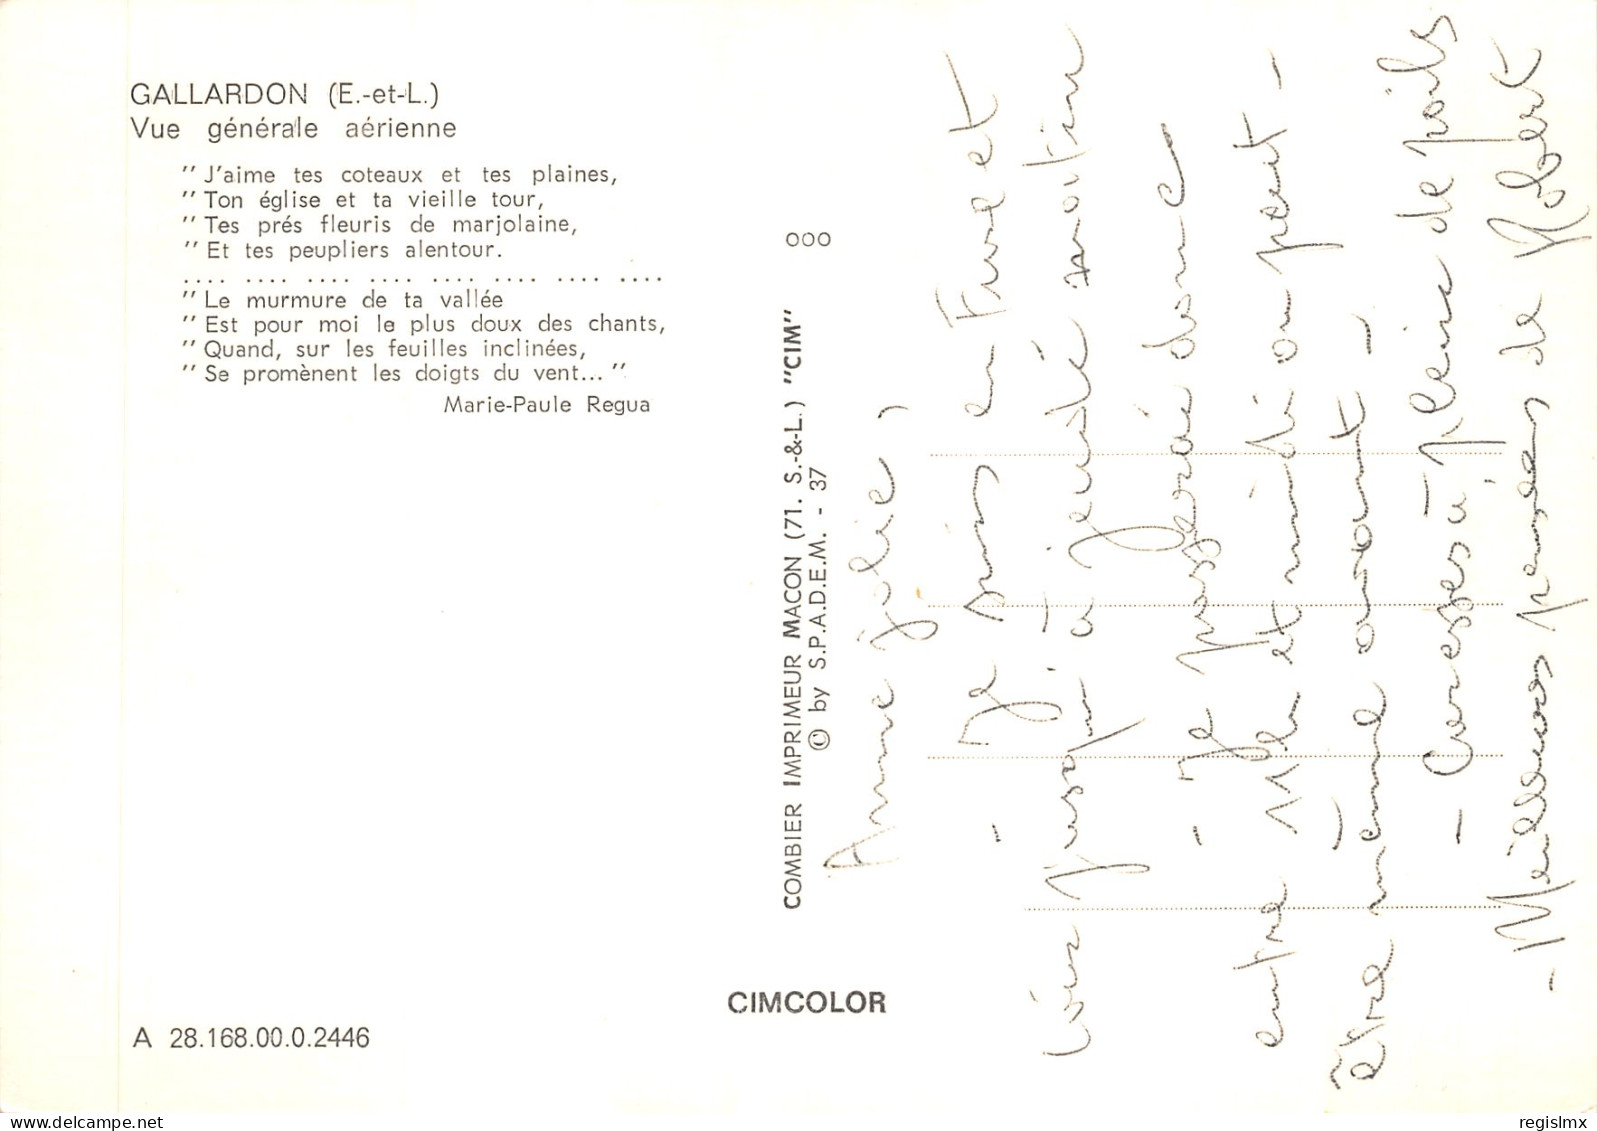 GALLARDON (E.-et-L.)
Vue générale aérienne
" J'aime tes coteaux et tes plaines,
" Ton église et ta vieille tour,
" Tes prés fleuris de marjolaine,
" Et tes peupliers alentour.
.... .... .... .... .... .... .... ....
" Le murmure de ta vallée
" Est pour moi le plus doux des chants,
" Quand, sur les feuilles inclinées,
" Se promènent les doigts du vent... "
Marie-Paule Regua
A 28.168.00.0.2446
CIMCOLOR
COMBIER IMPRIMEUR MACON (71. S.-&-L.) "CIM"
© by S.P.A.D.E.M. - 37
000
Anne jolie,
- Je suis en et
jusqu'à jeudi matin
- Je passerai donc
entre 11h et midi ou peut-
- être même avant -
- Caresses à pleine de poils
- Meilleures pensées de Robert
regislmx